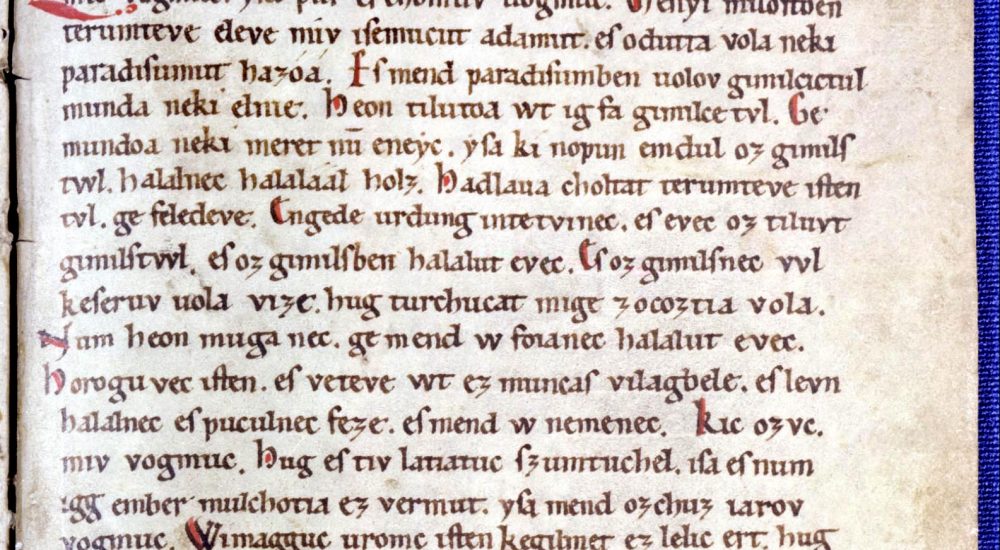 pur eſ chomuv uogmuc. Menyi miloſtben
terumteve eleve miv iſemucut adamut. eſ odutta vola neki
paradiſumut hazóa. Eſ mend paradiſumben uolov gimilcictul
munda neki elnie. Heon tilutoa wt ig fa gimilce tvl. Ge
mundoa neki meret nū eneyc. yſa ki nopun emdul oz gimilſ
twl. halalnec halaláál holz. Hadlaua choltat terumteve iſten
tvl. ge feledeve. Engede urdung intetvinec. eſ evec oz tiluvt
gimilſtwl. eſ oz gimilſben halalut evec. Eſ oz gimilſnec vvl
keſeruv uola vize. hug turchucat mige zocoztia vola.
Num heon muga nec. ge mend w foianec halalut evec.
Horogu vec iſten. eſ veteve wt ez muncaſ vilagbele. eſ levn
halalnec eſ puculnec feze. eſ mend w nemenec. Kic ozvc.
miv vogmuc. Hug eſ tiv latiatuc ſzumtuchel. iſa eſ num
igg ember mulchotia ez vermut. yſa mend ozchuz iarov
vogmuc. Wimagguc uromc iſten kegilmet ez lelic ert. hug